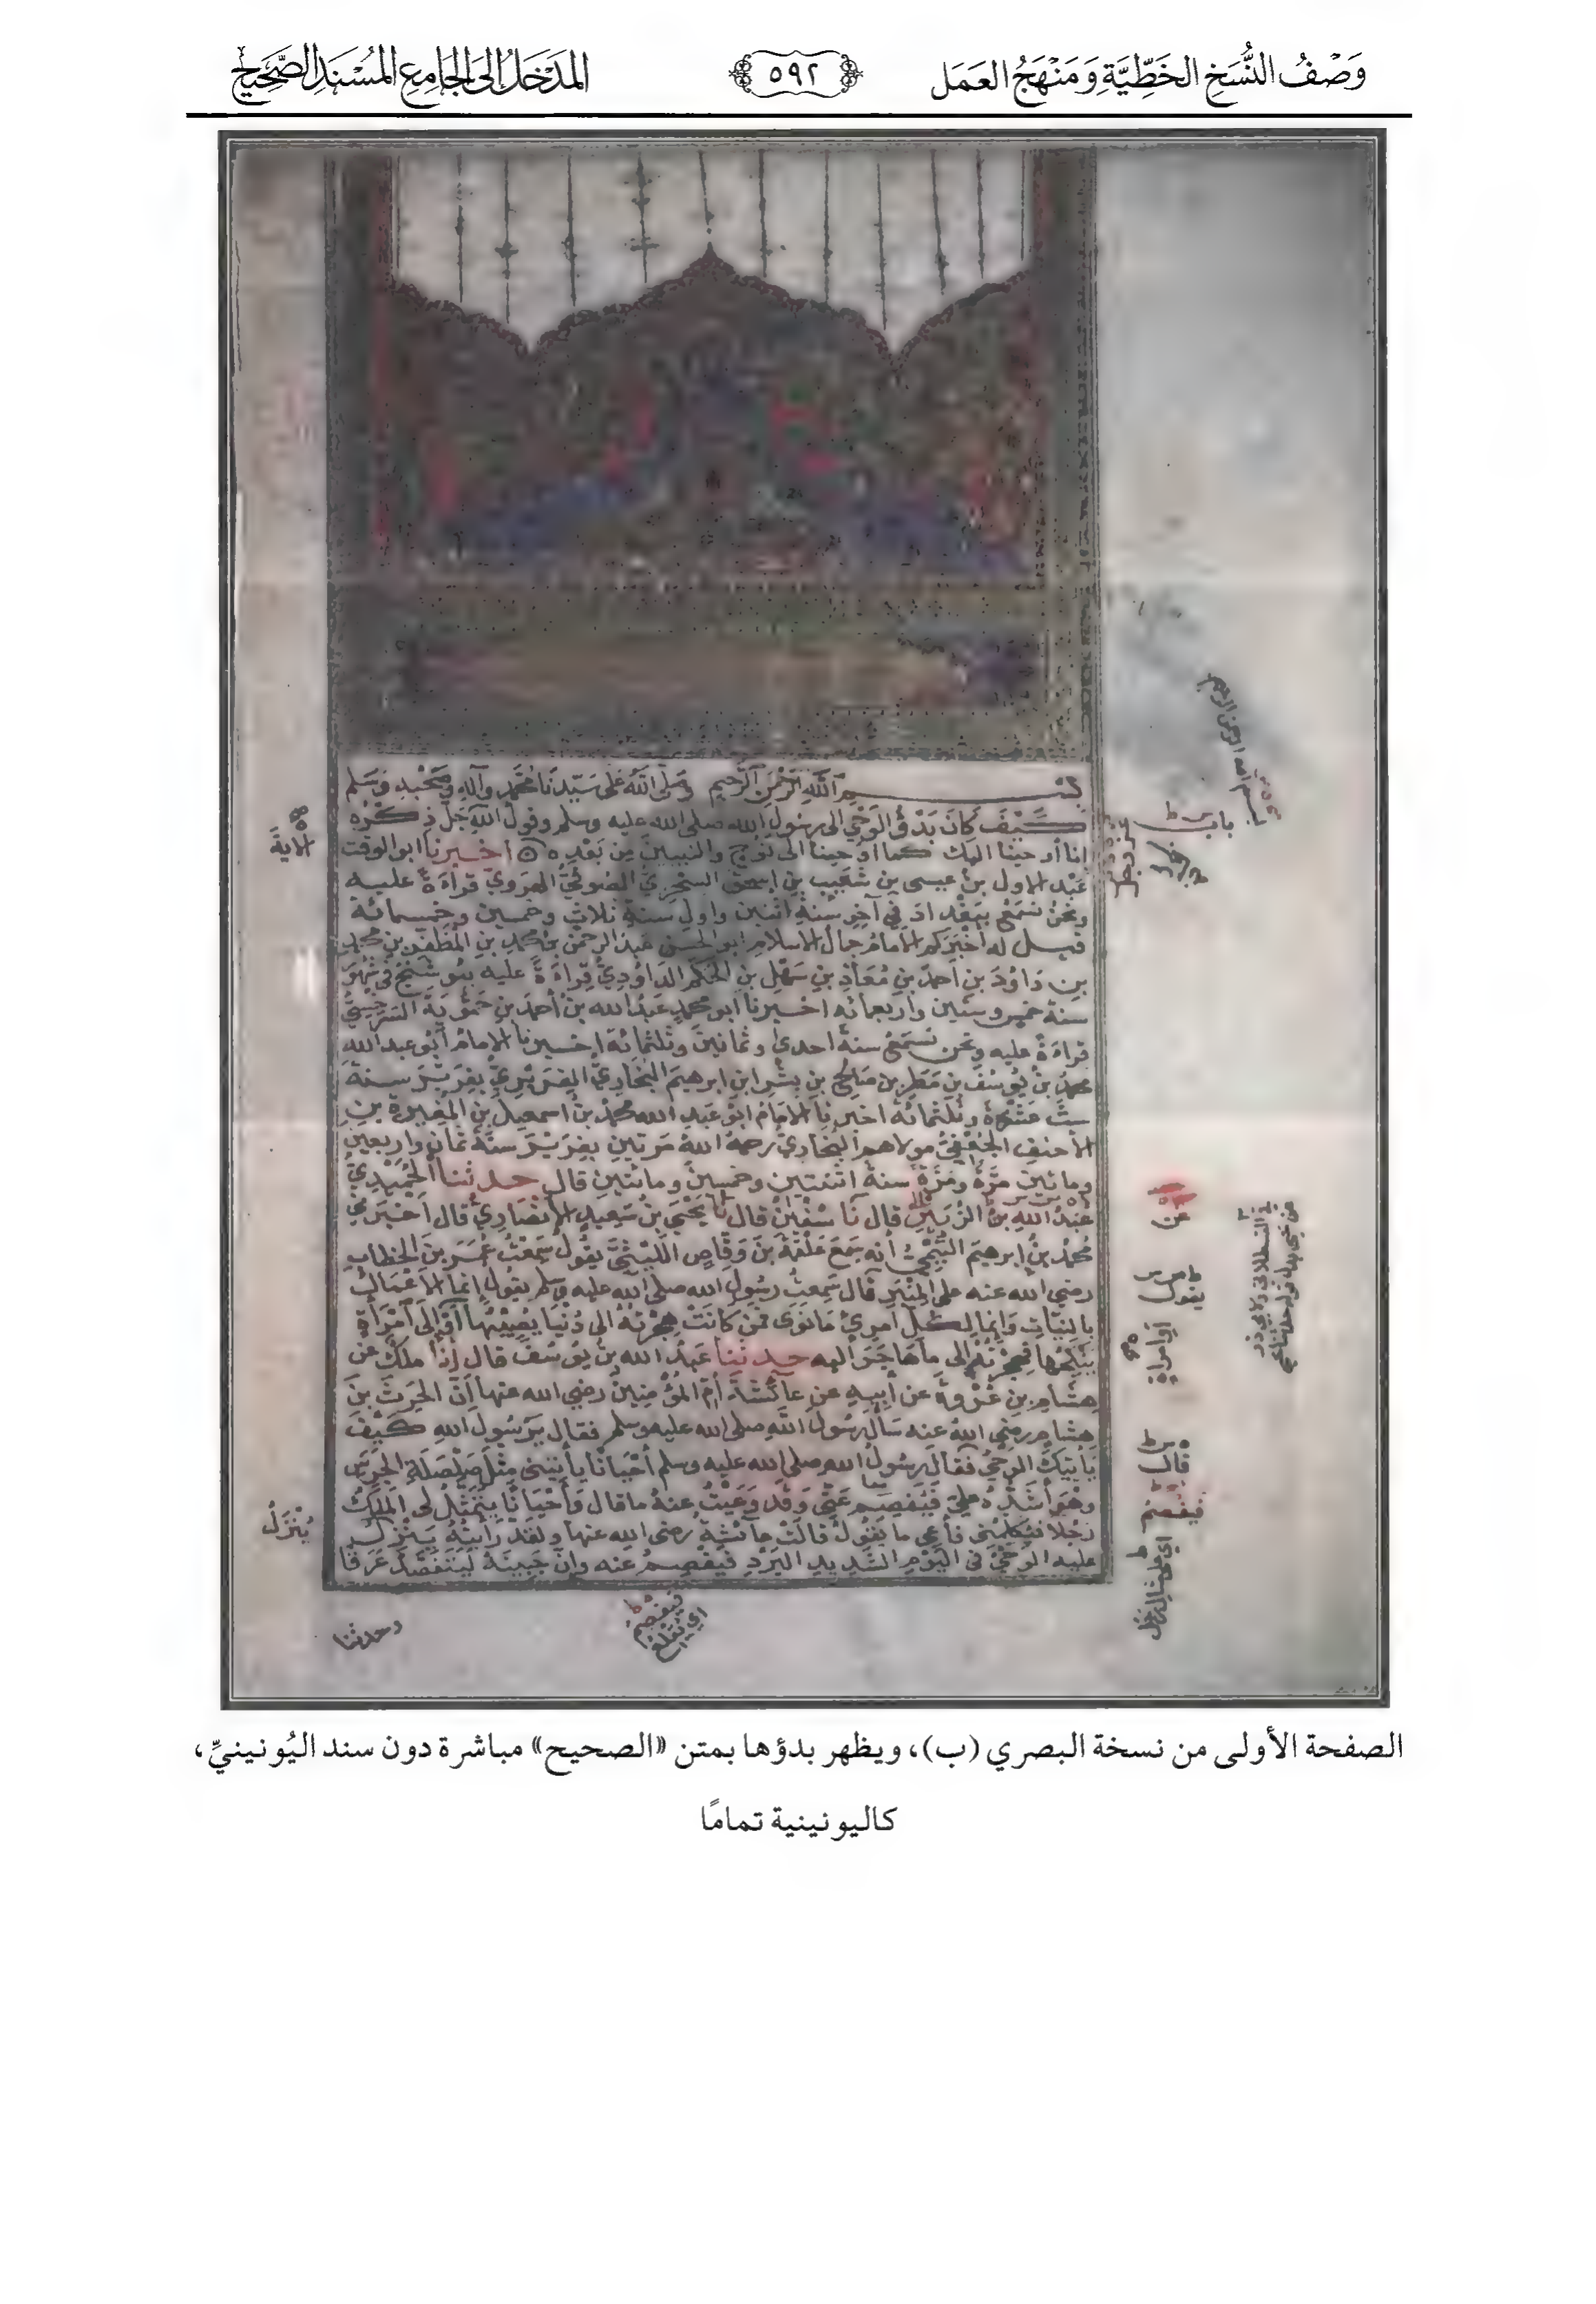 وَصْفُ النُّسَخِ الخَطِّيَّةِ وَمَنْهَجُ العَمَل
٥٩٢
المَدْخَلُ إِلَى الجَامِعِ المُسْنَدِ الصَّحِيحِ
بسم الله الرحمن الرحيم وصلى الله على سيدنا محمد وآله وصحبه وسلم
كَيْفَ كَانَ بَدْؤُ الوَحْيِ الى رسول الله صلى الله عليه وسلم وقول الله جَلَّ ذِكْرُه
انا أوحينا اليك كما اوحينا الى نوح والنبيين من بَعْدِه اخبرنا ابو الوقت
عبد الاول بن عيسى بن شعيب بن اسحق السجزي الصوفي الهروي قراءةً عليه
ونحن نسمع ببغداد في آخر سنة اثنين واول سنة ثلاث وخمسين وخمسمائة
قيل له اخبركم الامام جمال الاسلام ابو الحسن عبد الرحمن بن محمد بن المظفر بن محمد
بن داود بن احمد بن معاذ بن سهل بن الحكم الداودي قراءةً عليه ببوشنج في شهور
سنة خمس وستين واربعمائه اخبرنا ابو محمد عبد الله بن أحمد بن حمويه السرخسي
قراءةً عليه ونحن نسمع سنة احدى وثمانين وثلثمائة اخبرنا الامام أبو عبد الله
محمد بن يوسف بن مطر بن صالح بن بشر ابن ابرهيم البخاري الفربري بفربر سنة
ست عشرة وثلثمائة اخبرنا الامام ابو عبد الله محمد بن اسمعيل بن المغيرة بن
الاحنف الجعفي مولاهم البخاري رحمه الله مرتين بفربر سنة ثمان واربعين
ومائتين مرَّةً ومَرَّةً سنة اثنتين وخمسين ومائتين قال حدثنا الحُمَيْدِيُّ
عبدُ الله بنُ الزُّبَيْر قال نا سفين قال نا يَحْيَى بن سعيد الأنصاري قال أخبرني
مُحمدُ بنُ ابرهيم التَّيْمِيُّ أنه سَمَعَ عَلْقَمَةَ بنَ وَقَّاصٍ اللَّيْثِيَّ يقول سَمِعْتُ عُمَرَ بنَ الخطاب
رضي الله عنه على المِنْبَرِ قال سَمعتُ رَسُولَ الله صلى الله عليه وسلم يقول إنما الأعمال
بالنياتِ وَإنما لِكُلِّ امْرِئٍ مَا نَوَى فمن كَانَتْ هِجْرَتُهُ الى دُنْيَا يُصِيبُهَا أَوْ إلَى امْرَأَةٍ
يَنْكِحُها فَهِجْرَتُهُ الى ما هَاجَرَ اليه حدثنا عَبْدُ الله بنُ يُوسُفَ قال انا ملك عن
هِشَامِ بنِ عُرْوَةَ عن أبيه عن عَائشةَ أُمِّ المُؤْمِنينَ رضي الله عنها أَنّ الحرث بنَ
هشام رضي الله عنه سَألَ رسولَ الله صلى الله عليه وسلم فقال يرسول الله كَيْفَ
يَأتِيكَ الوَحْيُ فقال رسولُ الله صلى الله عليه وسلم أحْيَانًا يأتيني مِثْلَ صَلْصَلَةِ الجَرَسِ
وهو أشَدُّهُ عليَّ فيفصم عَنّي وَقَد وَعَيْتُ عنهُ ما قال وَأَحْيَانًا يَتَمَثَّلُ لي المَلَكُ
رَجُلا فيُكَلِّمُني فأعِي ما يَقُولُ قالَتْ عائشةُ رضي الله عنها ولقد رأيتُهُ يَنْزِلُ
عليه الوَحْيُ في اليَوْمِ الشَّديدِ البَرْدِ فيفصم عنه وانَّ جَبِينَهُ لَيَتَفَصَّدُ عَرَقًا
الاية
يُنْزَلُ
باب
عن
يقول
أوامراة
قال
فيفصم
فيفصم
اي يُقْلِعُ
وحدثنا
الصفحة الأولى من نسخة البصري (ب)، ويظهر بدؤها بمتن «الصحيح» مباشرة دون سند اليُونينيِّ،
كاليونينية تمامًا